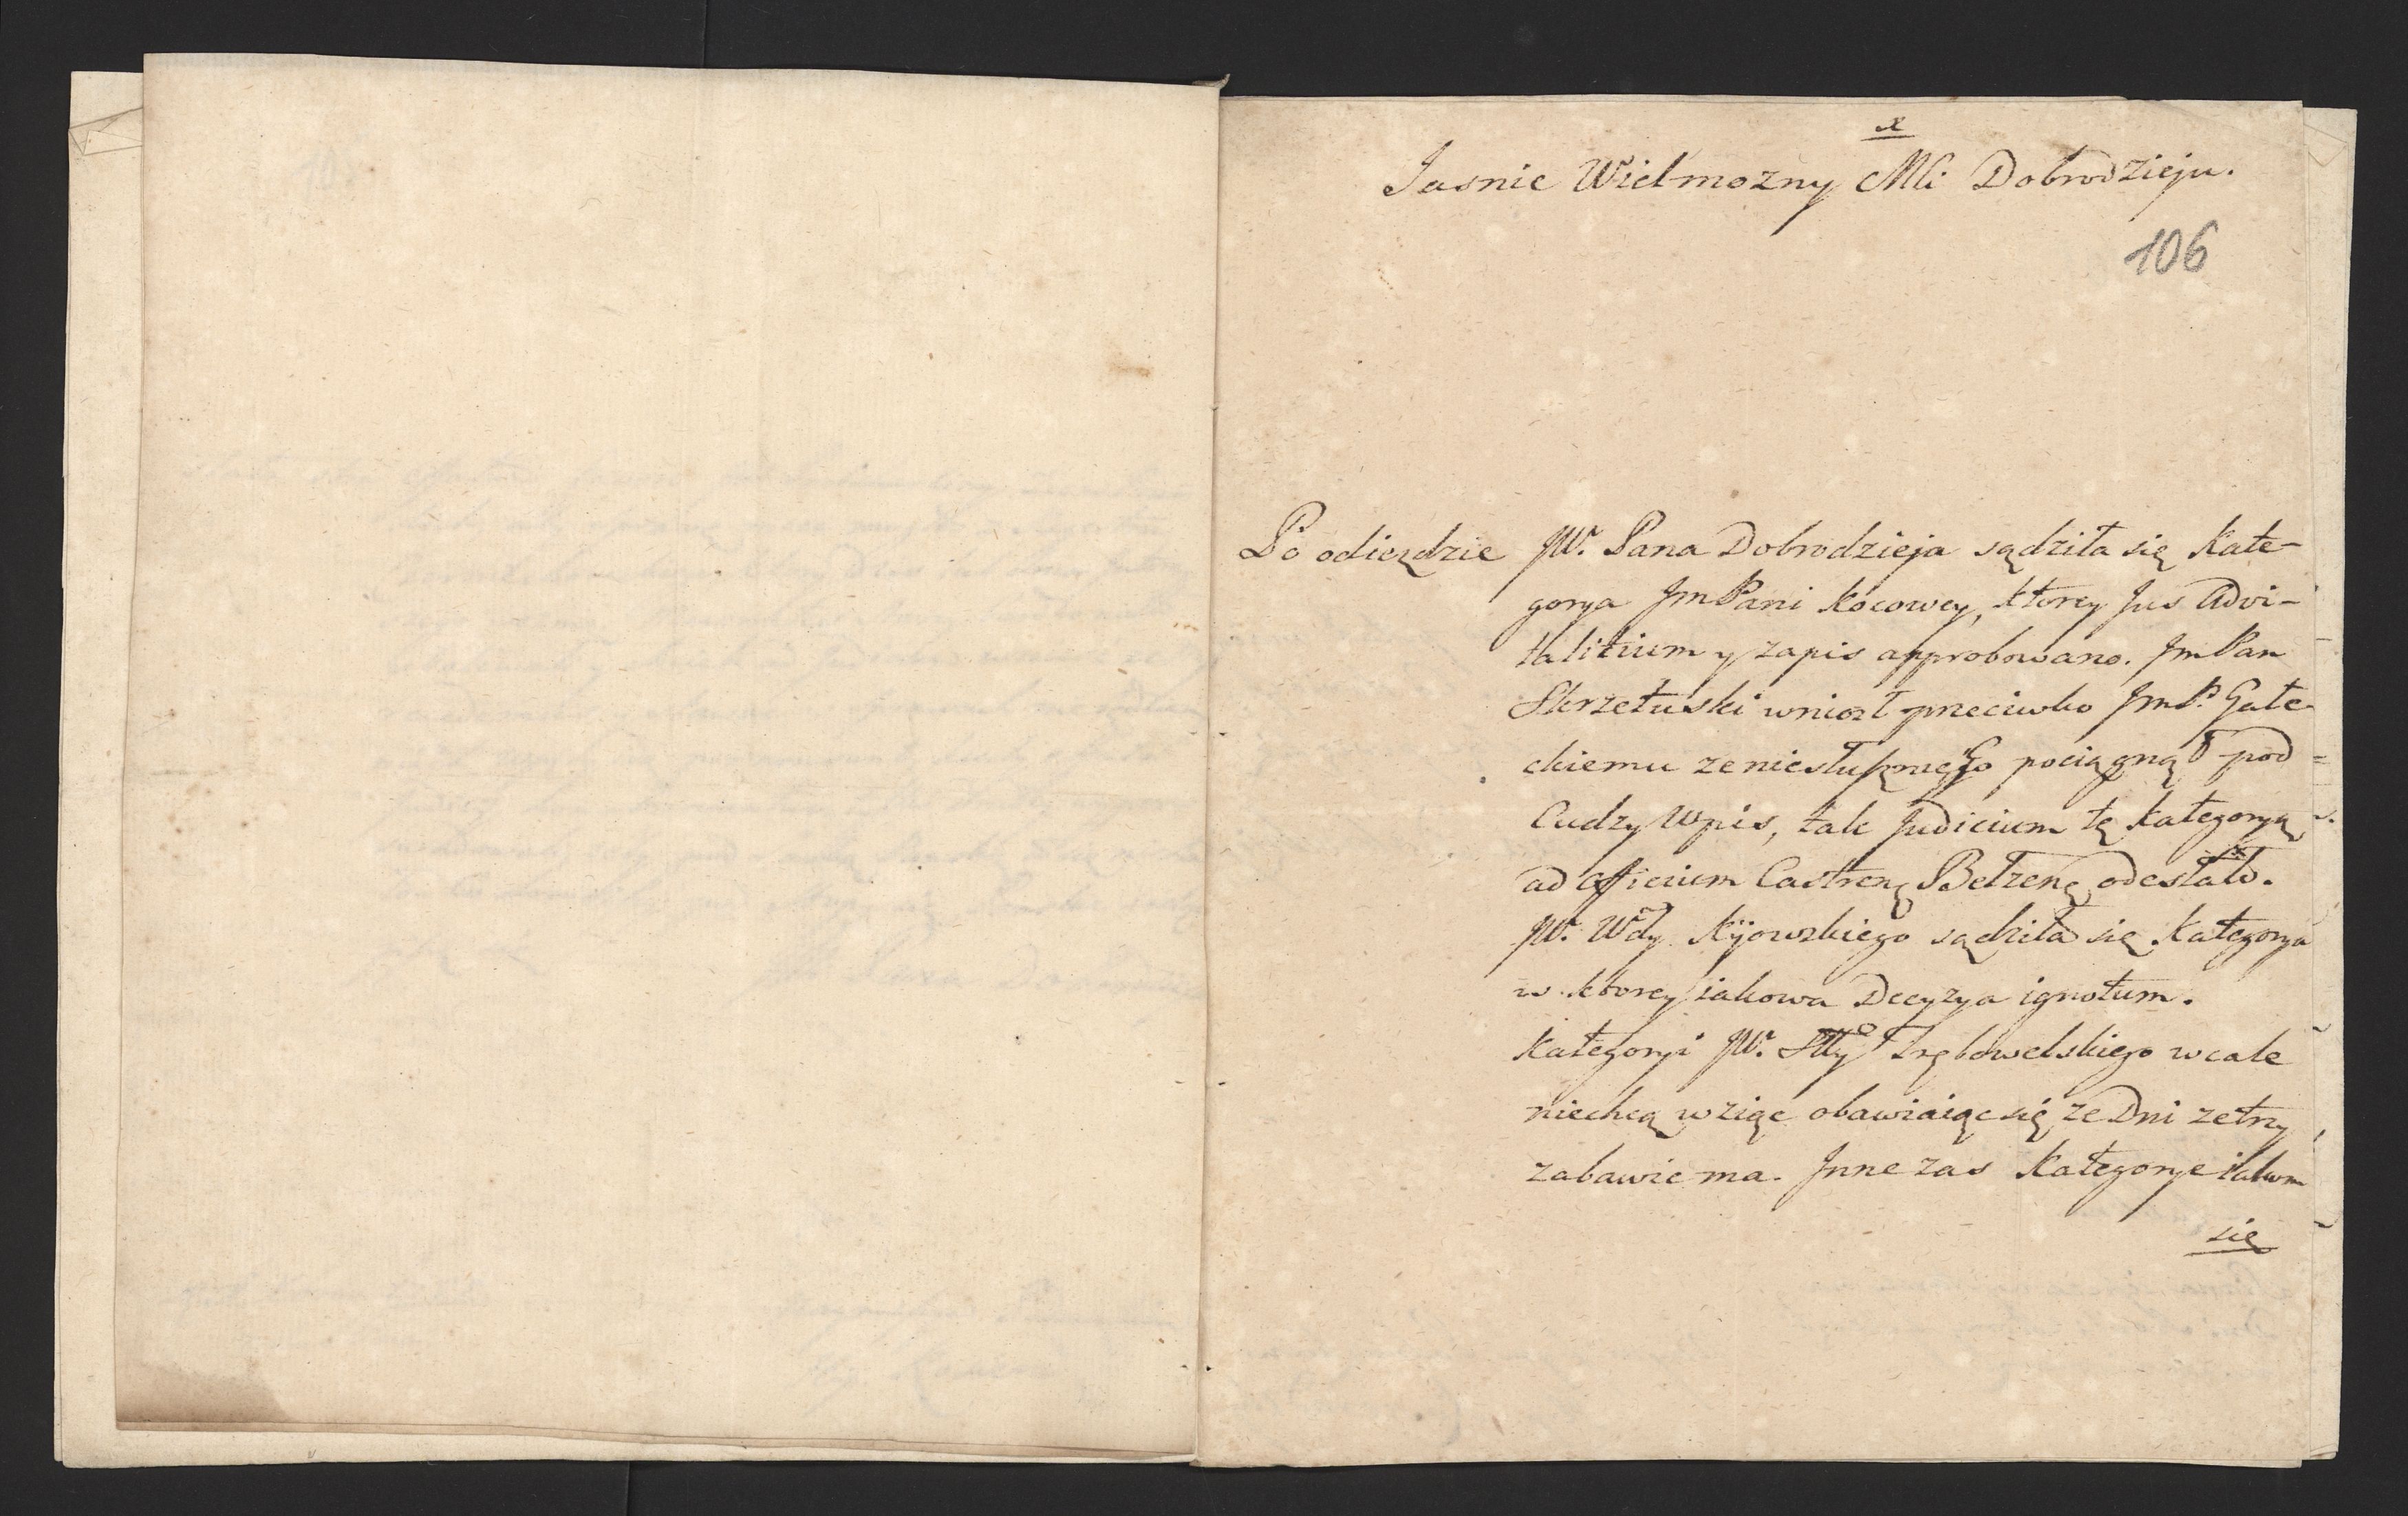 Jasnie Wielmozny Mci Dobrodzieju.
106
Po odiezdzie JW. Pana Dobrodzieja sądziła się Kate-
gorya JmPani Kocowey, ktorey Jus Advi-
talitium y zapis approbowano. JmPan
Skrzetuski wniosł przeciwko JmP. Gałe-
ckiemu ze niesłusznie go pociągnął pod
Cudzy Wpis, tak Judicium tę kategoryą
ad officium Castrenę Bełzenę odesłało.
JW. Wdy Kijowskiego sądziła się Kategorya
w ktorey iakowa Decyzya ignotum.
Kategoryi JW. Stty Tręбowelskiego wcale
niechcą wziąc obawiaiąc się ze Dni ze trzy
zabawic ma. Inne zas Kategorye
się